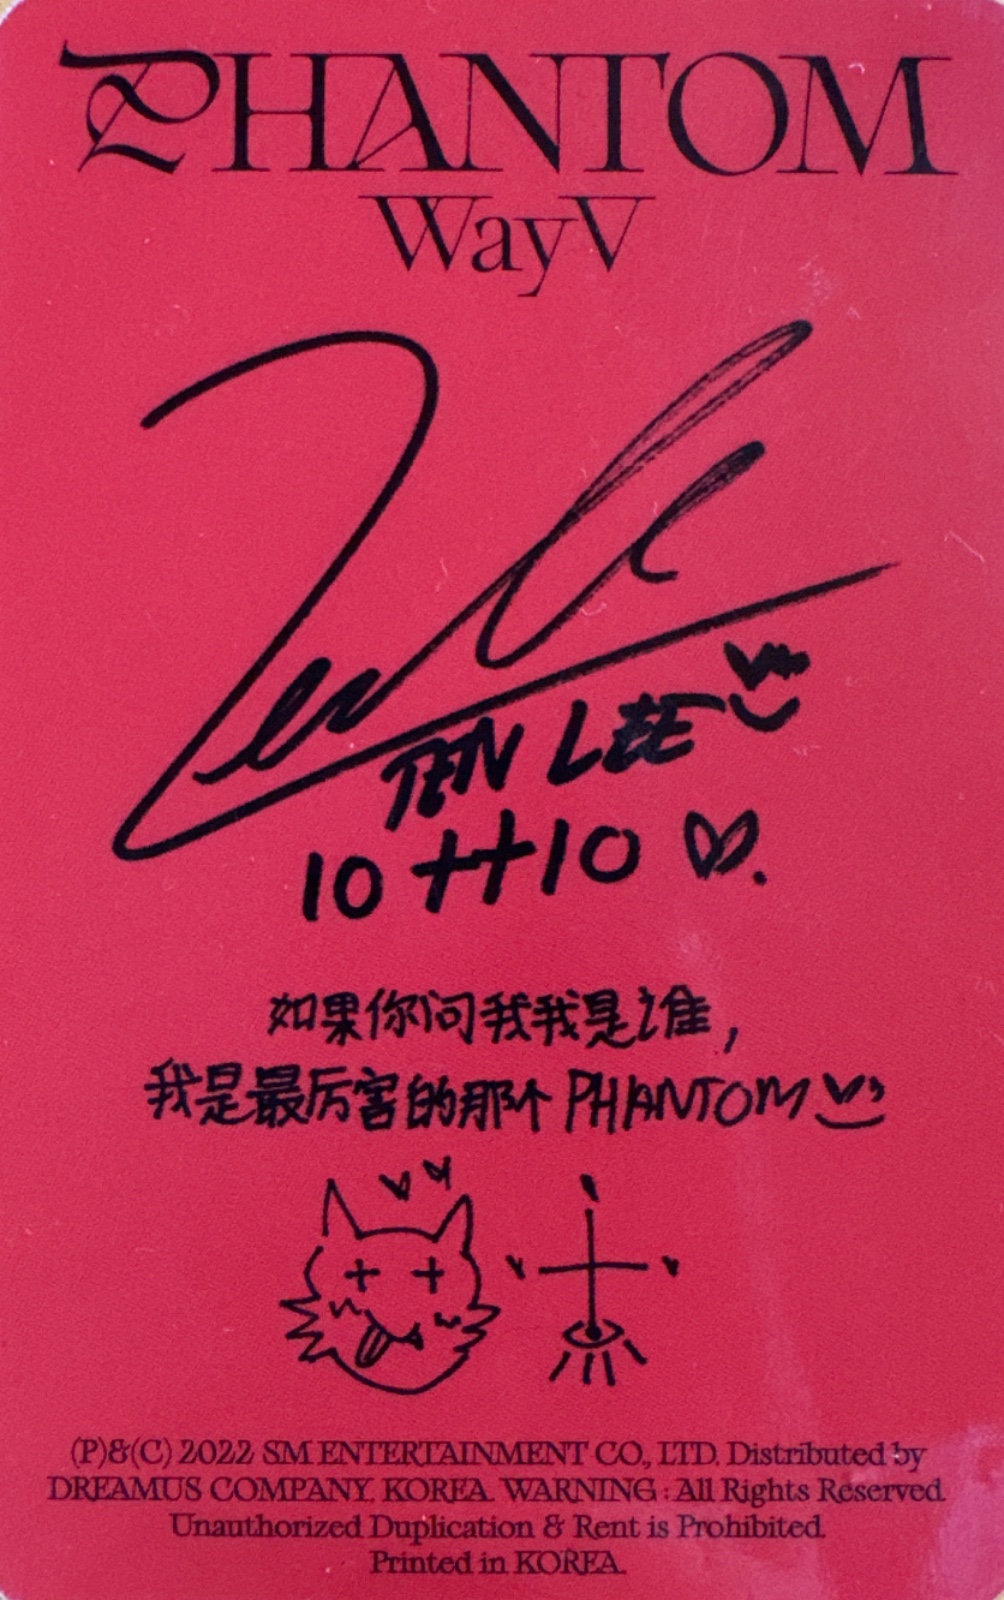 PHANTOM
WayV
TEN LEE
10 ++10
如果你问我我是谁,
我是最厉害的那个 PHANTOM
(P)&(C) 2022 SM ENTERTAINMENT CO., LTD. Distributed by
DREAMUS COMPANY, KOREA. WARNING : All Rights Reserved.
Unauthorized Duplication & Rent is Prohibited.
Printed in KOREA.